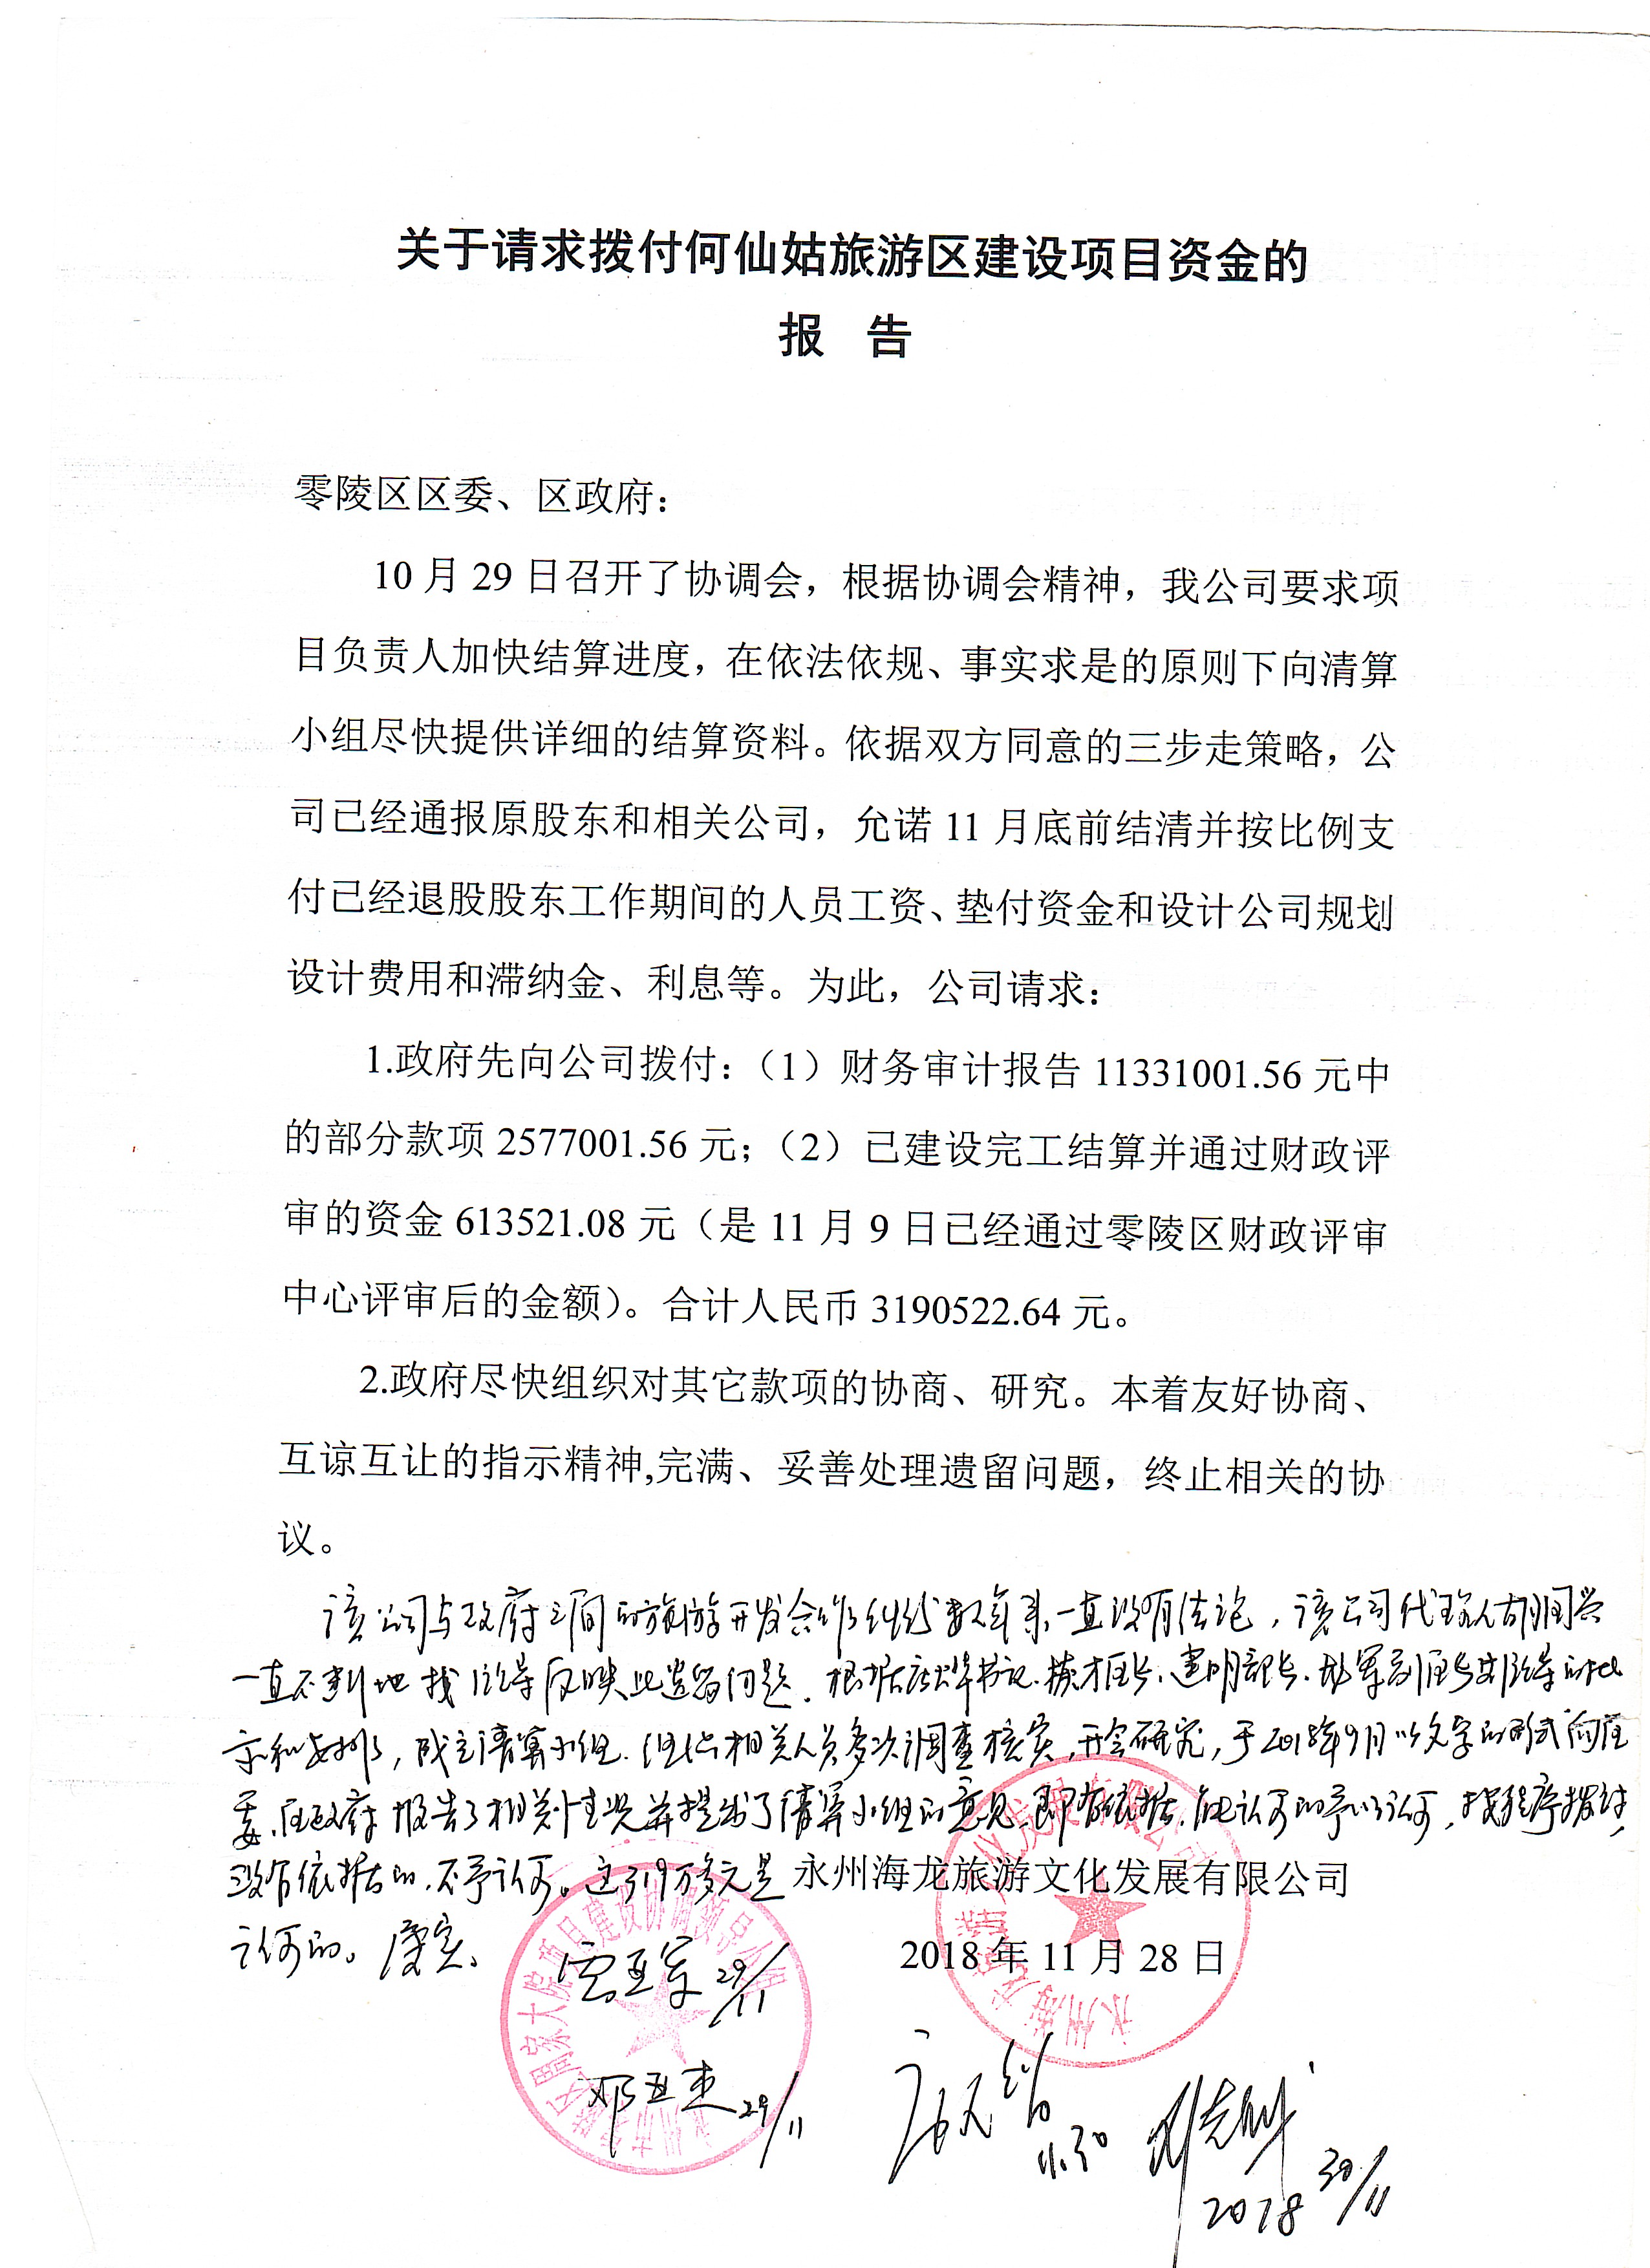 关于请求拨付何仙姑旅游区建设项目资金的
报 告
零陵区区委、区政府：
10月29日召开了协调会，根据协调会精神，我公司要求项
目负责人加快结算进度，在依法依规、事实求是的原则下向清算
小组尽快提供详细的结算资料。依据双方同意的三步走策略，公
司已经通报原股东和相关公司，允诺11月底前结清并按比例支
付已经退股股东工作期间的人员工资、垫付资金和设计公司规划
设计费用和滞纳金、利息等。为此，公司请求：
1.政府先向公司拨付：（1）财务审计报告11331001.56元中
的部分款项2577001.56元；（2）已建设完工结算并通过财政评
审的资金613521.08元（是11月9日已经通过零陵区财政评审
中心评审后的金额）。合计人民币3190522.64元。
2.政府尽快组织对其它款项的协商、研究。本着友好协商、
互谅互让的指示精神,完满、妥善处理遗留问题，终止相关的协
议。
该公司与政府之间的旅游开发合作纠纷数年来一直没有结论，该公司代理人胡国
一直不断地找领导反映此遗留问题．根据书记、区长、建明部长、军副区长等领导的批
示和安排，成立清算小组．组织相关人员多次调查核实，开会研究，于2018年9月以文字的形式向区
委、区政府报告了相关情况并提出了清算小组的意见，即有依据、能认可的予以认可，按程序拨付，
没有依据的．不予认可。这319万多元是
永州海龙旅游文化发展有限公司
认可的。属实。
2018年11月28日
29/11
邓亚 29/11
11.30
2018 30/11